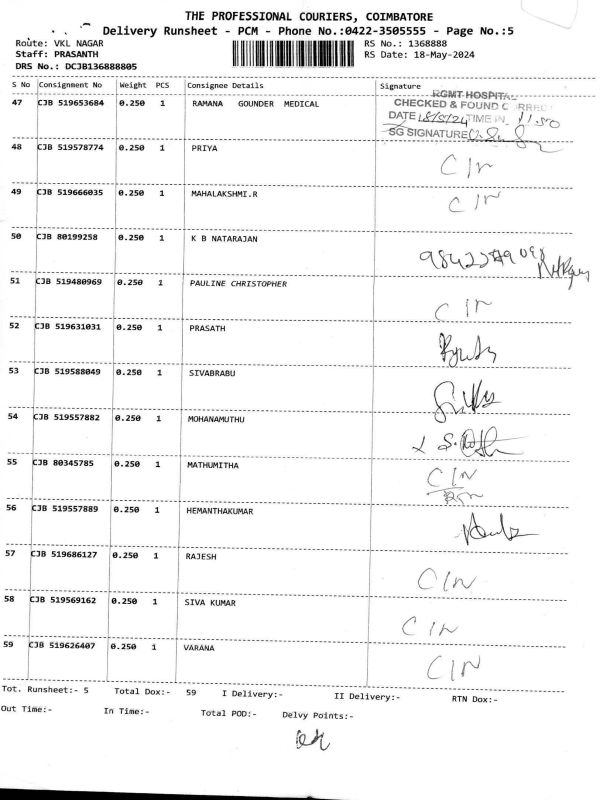 THE PROFESSIONAL COURIERS, COIMBATORE
Delivery Runsheet - PCM - Phone No.:0422-3505555 - Page No.:5
Route: VKL NAGAR RS No.: 1368888
Staff: PRASANTH RS Date: 18-May-2024
DRS No.: DCJB136888805
S No Consignment No Weight PCS Consignee Details Signature
RGMT HOSPITAL
47 CJB 519653684 0.250 1 RAMANA GOUNDER MEDICAL CHECKED & FOUND CORRECT
DATE 18/5/24 TIME IN 11.50
SG SIGNATURE
48 CJB 519578774 0.250 1 PRIYA CIN
49 CJB 519666035 0.250 1 MAHALAKSHMI.R CIN
50 CJB 80199258 0.250 1 K B NATARAJAN
51 CJB 519480969 0.250 1 PAULINE CHRISTOPHER CIN
52 CJB 519631031 0.250 1 PRASATH
53 CJB 519588049 0.250 1 SIVABRABU
54 CJB 519557882 0.250 1 MOHANAMUTHU
55 CJB 80345785 0.250 1 MATHUMITHA CIN
56 CJB 519557889 0.250 1 HEMANTHAKUMAR
57 CJB 519686127 0.250 1 RAJESH CIN
58 CJB 519569162 0.250 1 SIVA KUMAR CIN
59 CJB 519626407 0.250 1 VARANA CIN
Tot. Runsheet:- 5 Total Dox:- 59 I Delivery:- II Delivery:- RTN Dox:-
Out Time:- In Time:- Total POD:- Delvy Points:-